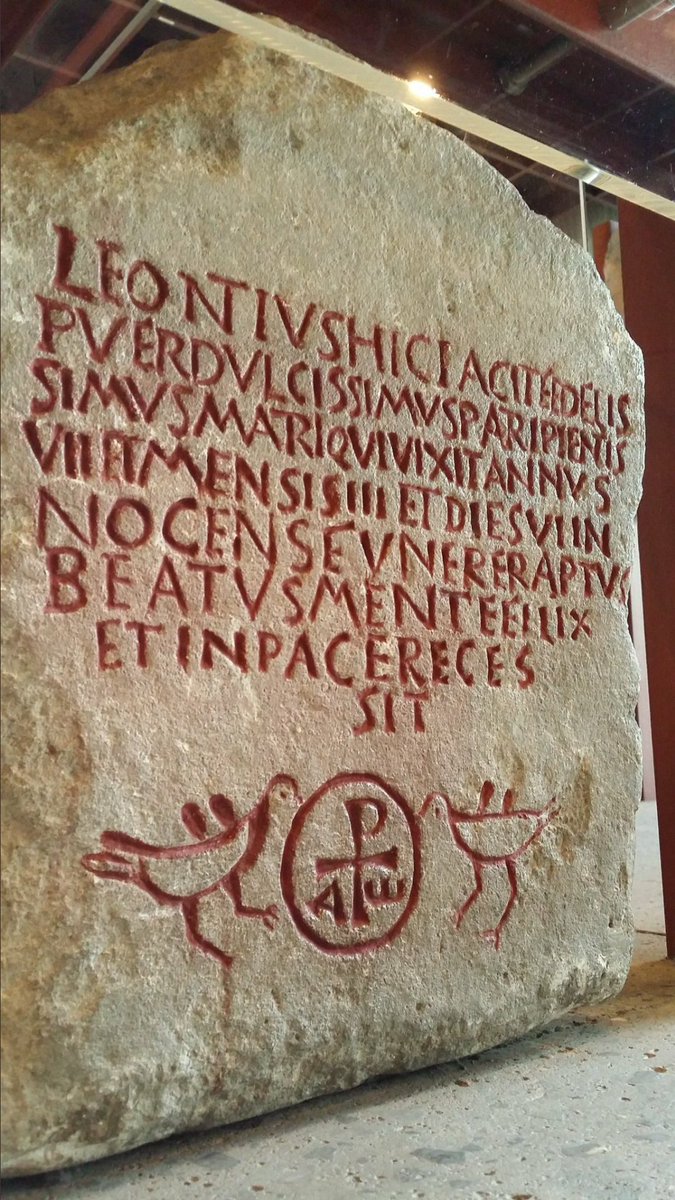 LEONTIVSHICIACITFEDELIS
PVERDVLCISSIMVSPATRIPIENTIS
SIMVSMATRIQVIVIXITANNVS
VIIETMENSISIIIETDIESVIIN
NOCENSFVNERERAPTVS
BEATVSMENTEFELIX
ETINPACERECES
SIT
A P ω